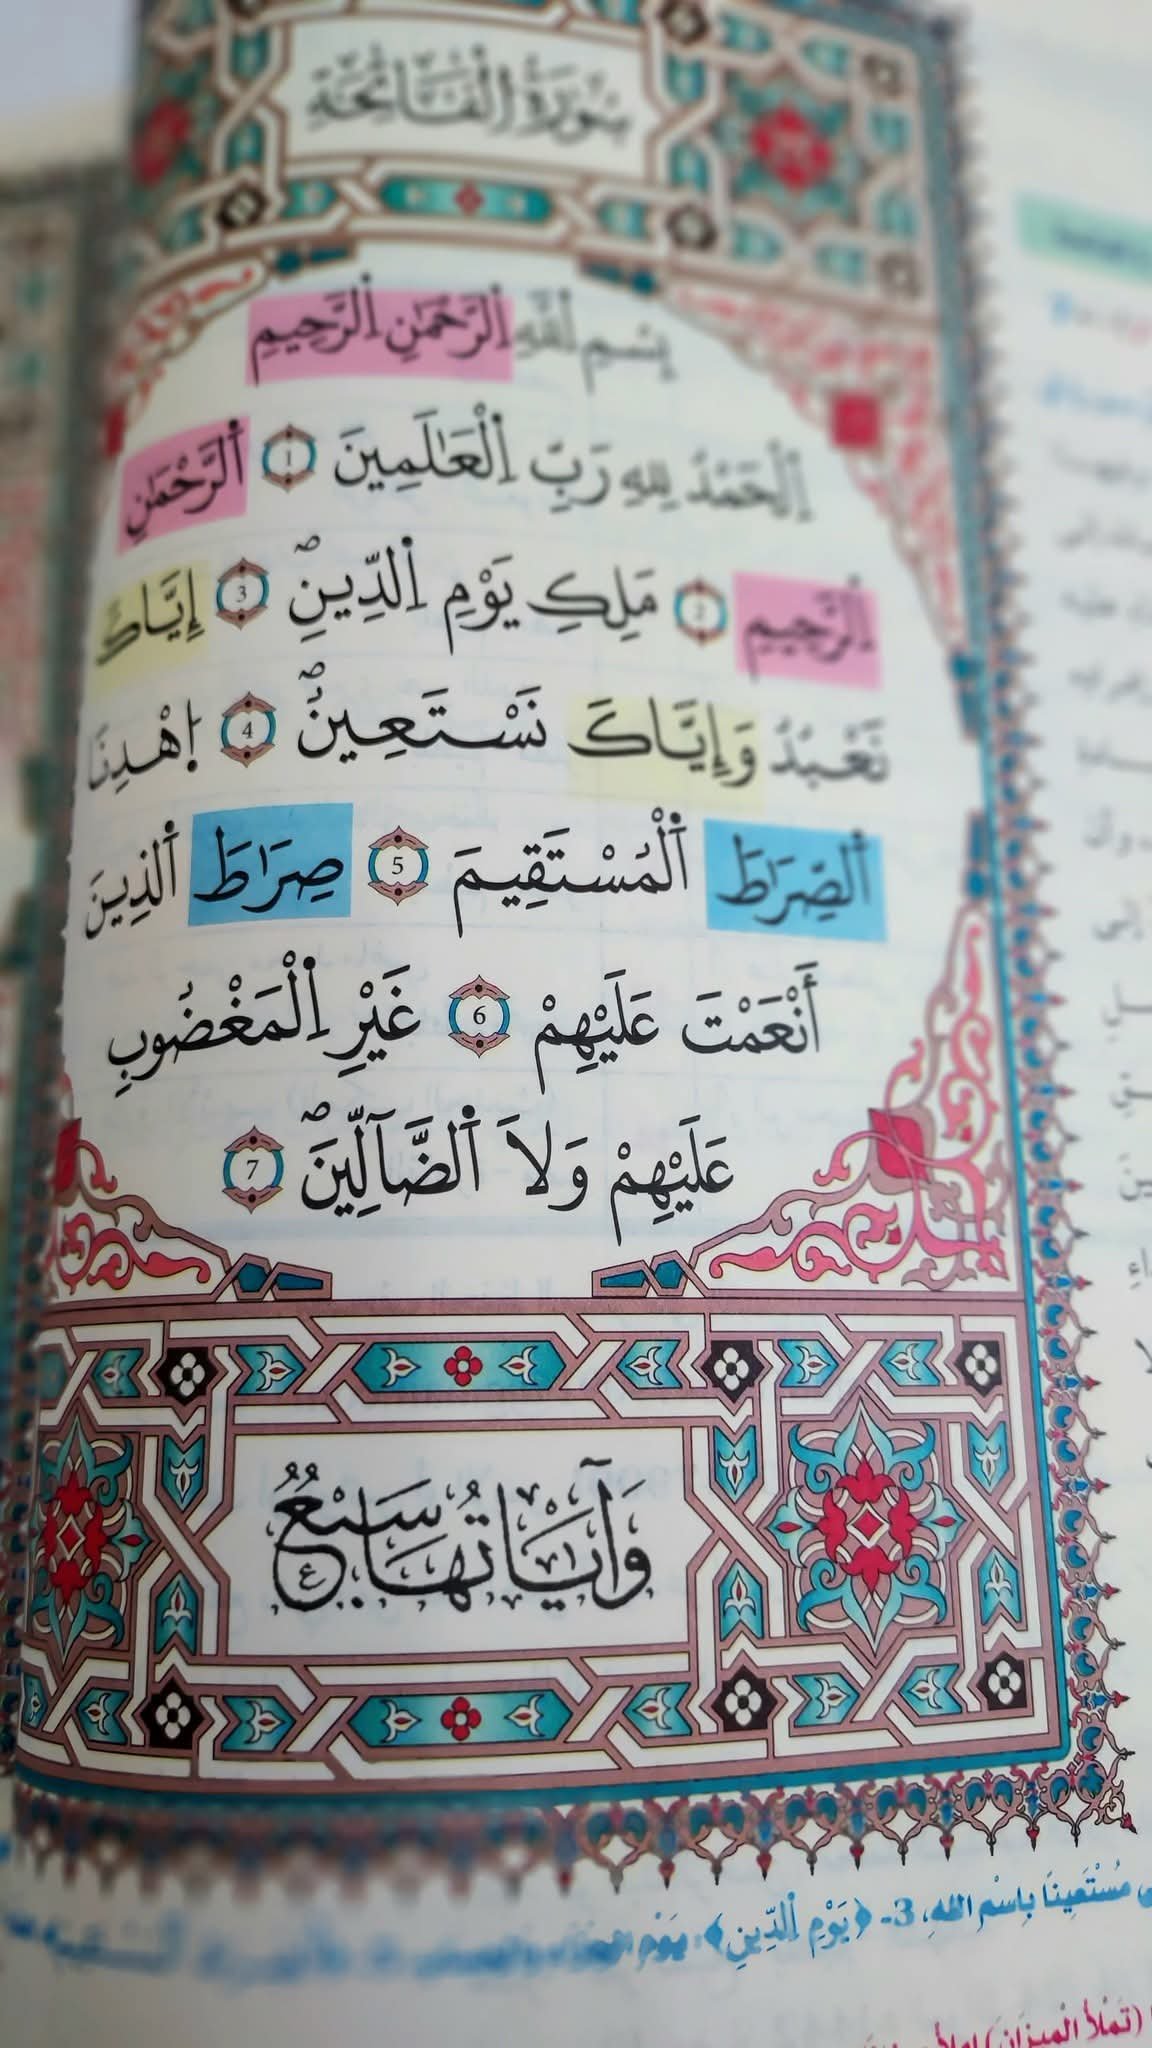 سُورَةُ الْفَاتِحَةِ
بِسْمِ اِ۬للَّهِ اِ۬لرَّحْمَٰنِ اِ۬لرَّحِيمِ
اِ۬لْحَمْدُ لِلهِ رَبِّ اِ۬لْعَٰلَمِينَ 1 اَ۬لرَّحْمَٰنِ
اِ۬لرَّحِيمِ 2 مَلِكِ يَوْمِ اِ۬لدِّينِۖ 3 إِيَّاكَ
نَعْبُدُ وَإِيَّاكَ نَسْتَعِينُۖ 4 اُ۪هْدِنَا
اَ۬لصِّرَٰطَ اَ۬لْمُسْتَقِيمَ 5 صِرَٰطَ اَ۬لذِينَ
أَنْعَمْتَ عَلَيْهِمْ 6 غَيْرِ اِ۬لْمَغْضُوبِ
عَلَيْهِمْ وَلَا اَ۬لضَّآلِّينَۖ 7
وَآيَاتُهَا سَبْعٌ
مُسْتَعِينًا بِاسْمِ اللهِ، 3- ﴿يَوْمِ اِ۬لدِّينِ﴾: يَوْمِ
(تَمْلَأُ الْمِيزَانَ)